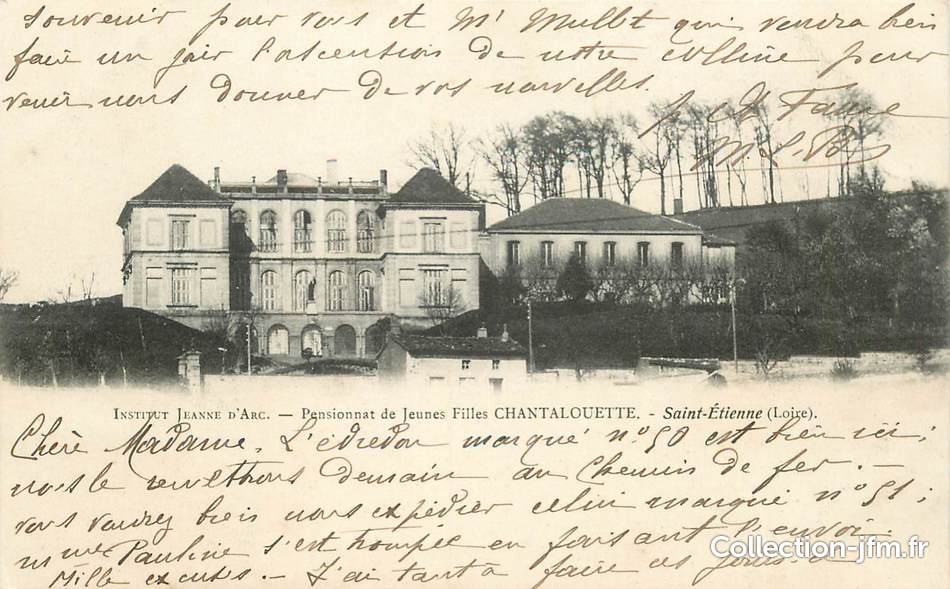 souvenir pour vous et Mr Mullet qui voudra bien
faire un jour l'ascension de notre colline pour
venir nous donner de vos nouvelles.
M. L. B
INSTITUT JEANNE D'ARC. — Pensionnat de Jeunes Filles CHANTALOUETTE. - Saint-Étienne (Loire).
Chère Madame, L'édredon marqué n° 50 est bien ici;
nous le remettrons demain au Chemin de fer. —
vous voudrez bien nous expédier celui marqué n° 51;
Mme Pauline s'est trompée en faisant l'envoi.
Mille excuses. — J'ai tant à faire ces jours-ci
Collection-jfm.fr